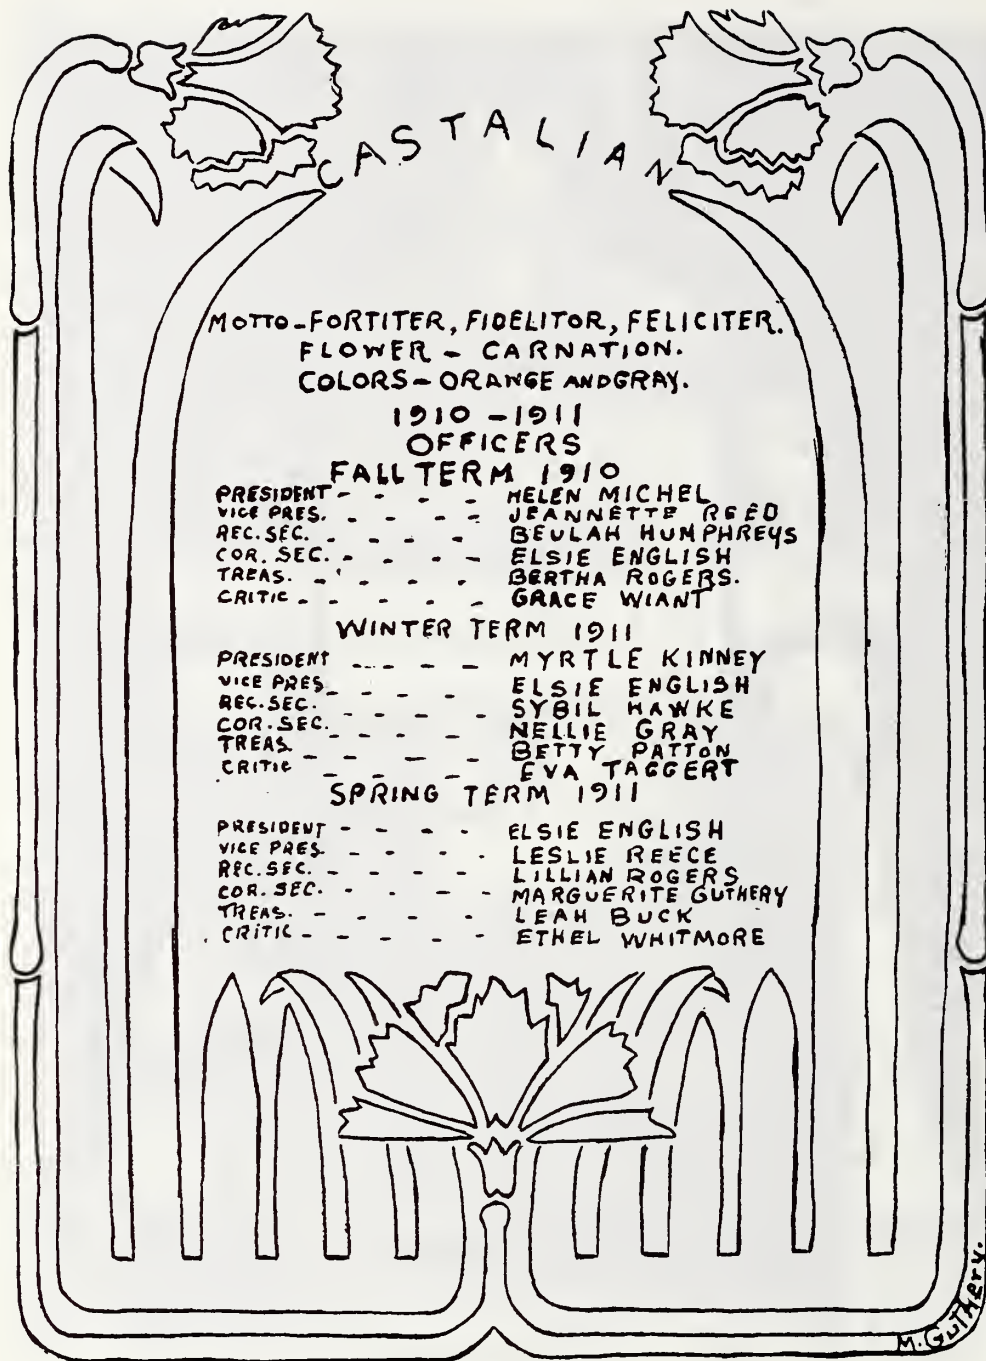 CASTALIAN
MOTTO-FORTITER, FIDELITOR, FELICITER.
FLOWER - CARNATION.
COLORS - ORANGE AND GRAY.
1910 - 1911
OFFICERS
FALL TERM 1910
PRESIDENT - - - - HELEN MICHEL
VICE PRES. - - - - JEANNETTE REED
REC. SEC. - - - - BEULAH HUMPHREYS
COR. SEC. - - - - ELSIE ENGLISH
TREAS. - - - - - BERTHA ROGERS.
CRITIC - - - - - GRACE WIANT
WINTER TERM 1911
PRESIDENT - - - - MYRTLE KINNEY
VICE PRES. - - - - ELSIE ENGLISH
REC. SEC. - - - - SYBIL HAWKE
COR. SEC. - - - - NELLIE GRAY
TREAS. - - - - BETTY PATTON
CRITIC - - - - EVA TAGGERT
SPRING TERM 1911
PRESIDENT - - - - ELSIE ENGLISH
VICE PRES. - - - - LESLIE REECE
REC. SEC. - - - - LILLIAN ROGERS
COR. SEC. - - - - MARGUERITE GUTHERY
TREAS. - - - - LEAH BUCK
CRITIC - - - - - ETHEL WHITMORE
M. GUTHERY.